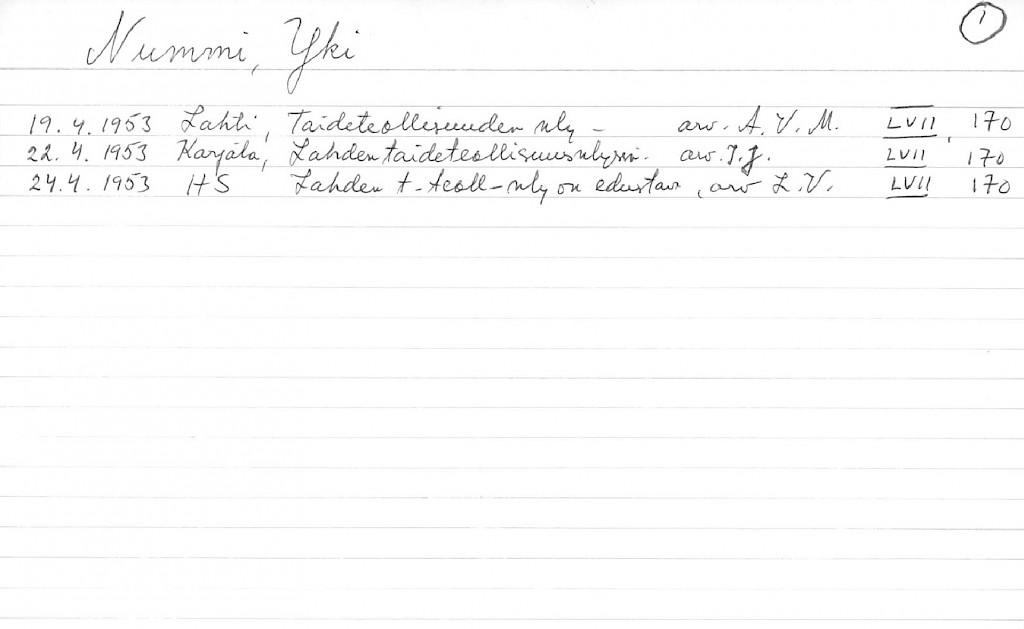 1
Nummi, Yki
19.4.1953 Lahti, Taideteollisuuden nly - arv. A.V.M. LVII, 170
22.4.1953 Karjala, Lahden taideteollisuusnlyssä. arv. J.J. LVII 170
24.4.1953 HS Lahden t-teoll-nly on edustava, arv L.V. LVII 170